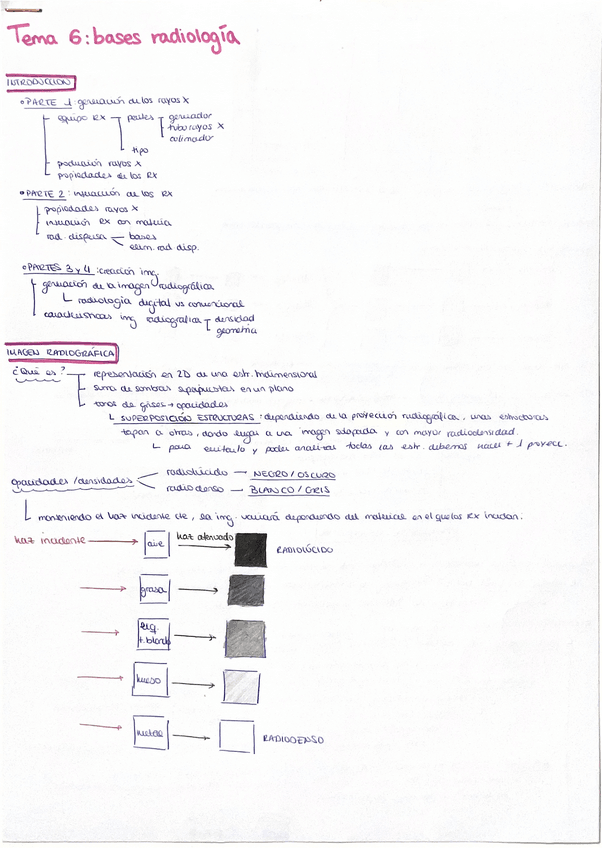 Tema 6: bases radiología
INTRODUCCIÓN
• PARTE 1: generación de los rayos X
equipo RX partes generador
tubo rayos X
colimador
tipo
producción rayos X
propiedades de los RX
• PARTE 2: interacción de los RX
propiedades rayos X
interacción RX con materia
rad. dispersa bases
elim. rad disp.
• PARTES 3 y 4: creación img.
generación de la imagen radiográfica
radiología digital vs convencional
características img radiográfica densidad
geometría
IMAGEN RADIOGRÁFICA
¿Qué es? representación en 2D de una estr. tridimensional
suma de sombras superpuestas en un plano
tonos de grises → opacidades
SUPERPOSICIÓN ESTRUCTURAS: dependiendo de la proyección radiográfica, unas estructuras
tapan a otras, dando lugar a una imagen solapada y con mayor radiodensidad.
para evitarlo y poder analizar todas las estr. debemos hacer + 1 proyecc.
opacidades/densidades radiolúcido — NEGRO/OSCURO
radiodenso — BLANCO/GRIS
manteniendo el haz incidente cte, la img. variará dependiendo del material en el que los RX incidan.
haz incidente → aire haz atenuado → RADIOLÚCIDO
→ grasa →
→ líq. →
t. bland
→ hueso →
→ metal → RADIODENSO